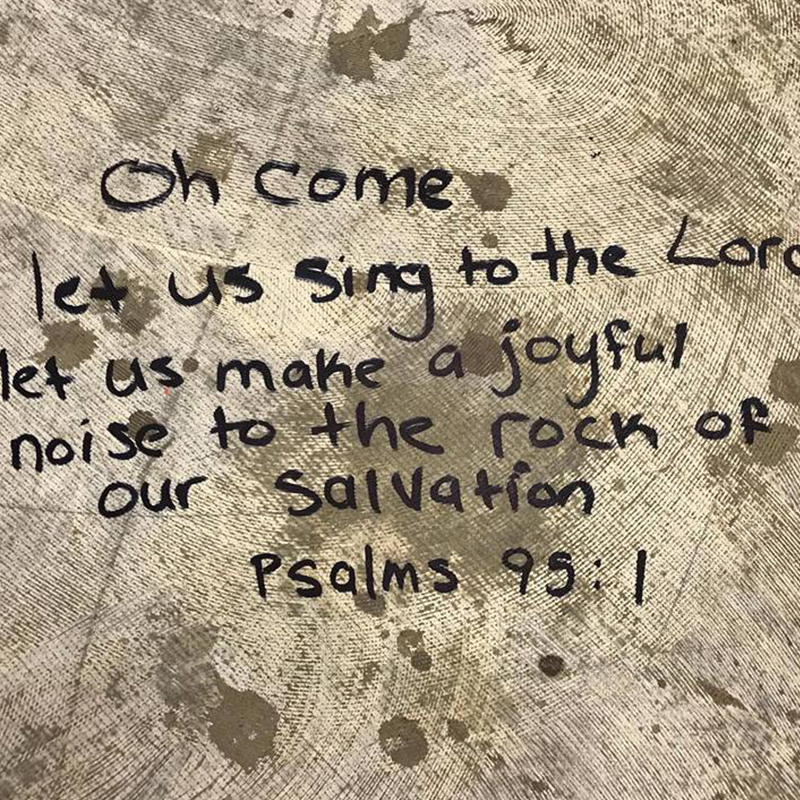 Oh come
let us sing to the Lord
let us make a joyful
noise to the rock of
our salvation
Psalms 95:1